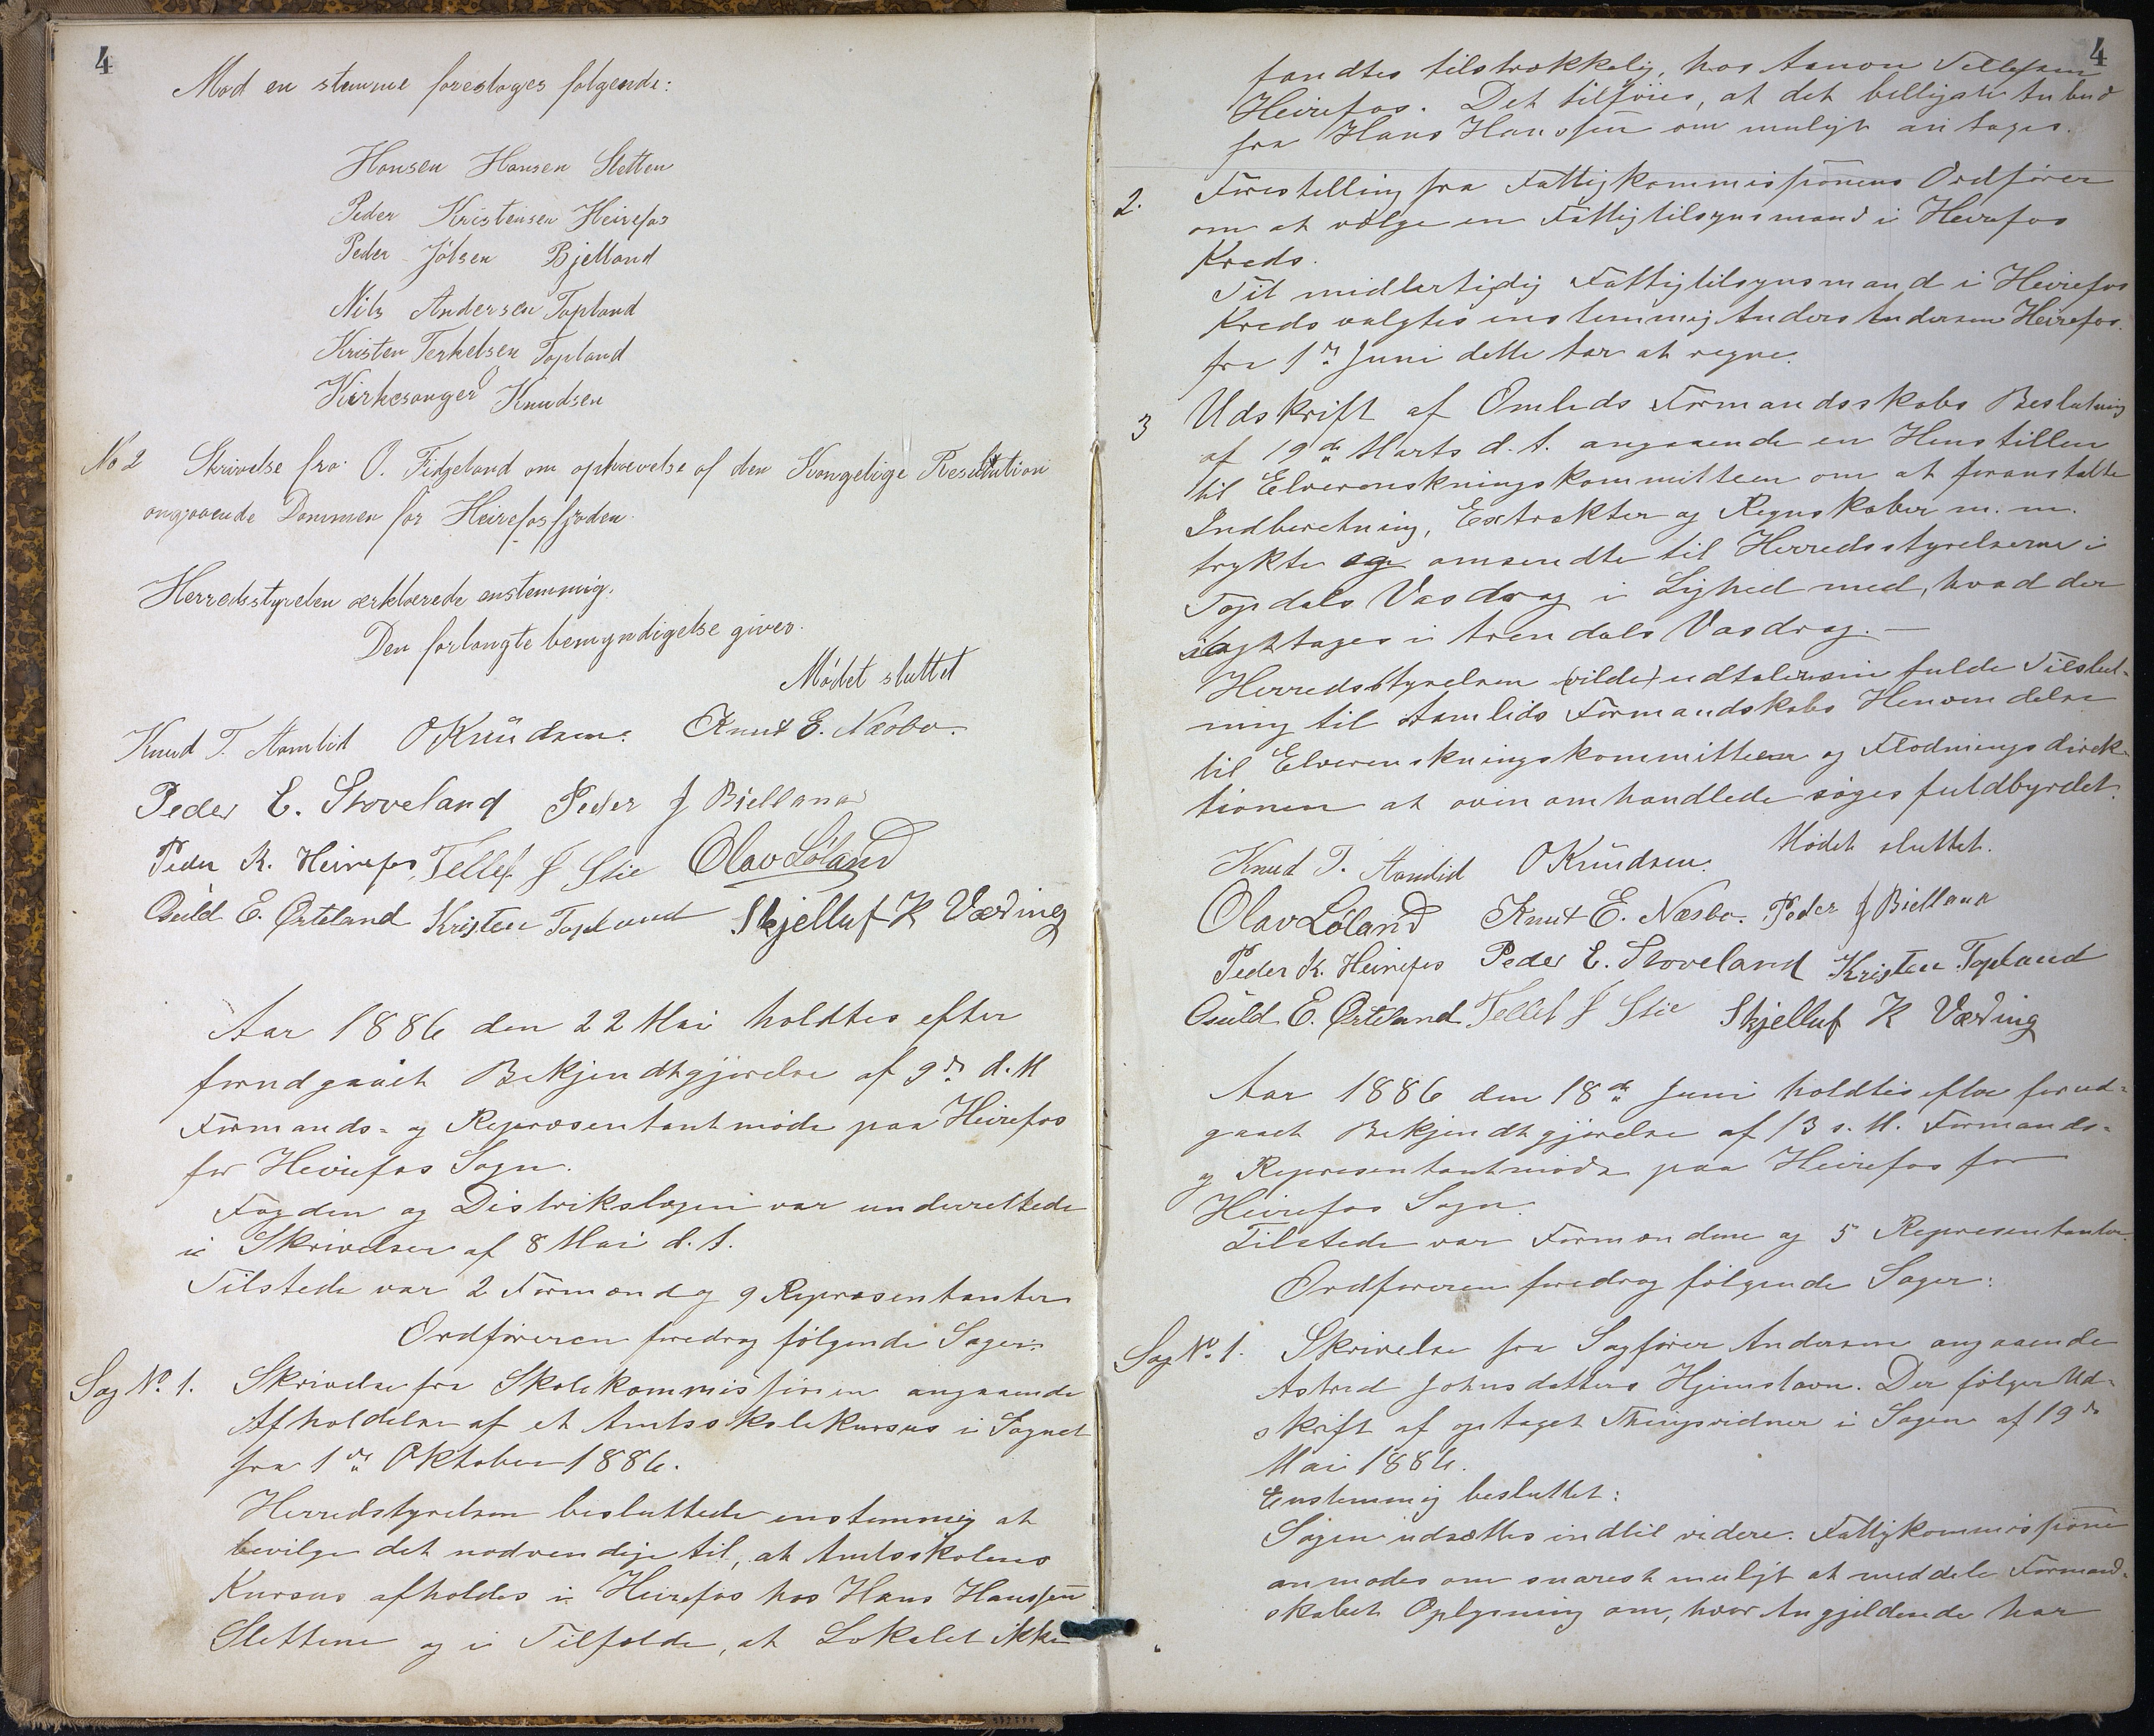 4
Mod en stemme foreslages følgende:
Hansen Hansen Sletten
Peder Kristensen Heirefos
Peder Jólsen Bjelland
Nils Andersen Topland
Kristen Terkelsen Topland
Kirkesanger Knudsen
No 2 Skrivelse fra O. Fidjeland om ophævelse af den Kongelige Resolution
angaaende Dammen for Heirefosfjorden.
Herredsstyrelen ærklærede enstemmig.
Den forlangte bemyndigelse gives.
Mödet sluttet
Knud T. Aamlid OKnüdsen. Knut E. Næsbø.
Peder E. Stoveland Peder J Bielland
Peder K. Heirefos, Tellef J Stie Olav Løland
Osuld E. Ørteland Kristen Topland Skjelluf K Væring
Aar 1886 den 22 Mai holdtes efter
forudgaaet Bekjendtgjørelse af 9de d. M
Formands- og Repræsentantmøde paa Heirefos
for Heirefos Sogn.
Fogden og Distrikslægen var underrettede
i Skrivelser af 8 Mai d. A.
Tilstede var 2 Formænd og 9 Repræsentanter
Ordføreren foredrog følgende Sager:
Sag No. 1. Skrivelse fra Skolekommissionen angaaende
Afholdelse af et Amtsskolekursus i Sognet
fra 1ste Oktober 1886.
Herredstyrelsen besluttede enstemmig at
bevilge det nødvendige til, at Amtsskolens
Kursus afholdes i Heirefos hos Hans Hanssen
Slettene og i Tilfælde, at Lokalet ikke
4
fandtes tilstrækkelig, hos Aanon Tellefsen
Heirefos. Det tilføies, at det billigste Anbud
fra Hans Hanssen om muligt antages.
2. Forestilling fra Fattigkommissionens Ordfører
om at vælge en Fattigtilsynsmand i Heirefos
Kreds.
Til midlertidig Fattigtilsynsmand i Heirefos
Kreds valgtes enstemmig Anders Andersen Heirefos.
fra 1ste Juni dette Aar at regne.
3 Udskrift af Omlids Formandsskabs Beslutning
af 19de Marts d. A. angaaende en Henstillen
til Elverenskningskommitteen om at foranstalte
Indberetning, Extrakter og Regnskaber m. m.
trykte og omsendte til Herredsstyrelserne i
Topdals Vasdrag i Lighed med, hvad der
iagttages i Arendals Vasdrag. —
Herredsstyrelsen (vilde) udtaler sin fulde Tilslut-
ning til Aamlids Formandskabs Henvendelse
til Elverenskningskommitteen og Flødningsdirek-
tionen at oven omhandlede søges fuldbyrdet.
Mødet sluttet.
Knud T. Aamlid OKnüdsen.
Olav Løland Knut E. Næsbø. Peder J Bielland
Peder K. Heirefos Peder E. Stoveland Kristen Topland
Osuld E. Ørteland Tellef J Stie Skjelluf K Væring
Aar 1886 den 18de Juni holdtes efter forud-
gaaet Bekjendtgjørelse af 13 s. M. Formands-
og Representantmøde paa Heirefos for
Heirefos Sogn.
Tilstede var Formændene og 5 Representanter.
Ordføreren foredrog følgende Sager:
Sag No. 1. Skrivelse fra Sagfører Andersen angaaende
Astrid Johnsdatters Hjemstavn. Der følger Ud-
skrift af optaget Thingsvidner i Sagen af 19de
Mai 1886.
Enstemmig besluttet:
Sagen udsættes indtil videre. Fattigkommissionen
anmodes om snarest muligt at meddele Formand-
skabet Oplysning om, hvor Angjeldende har